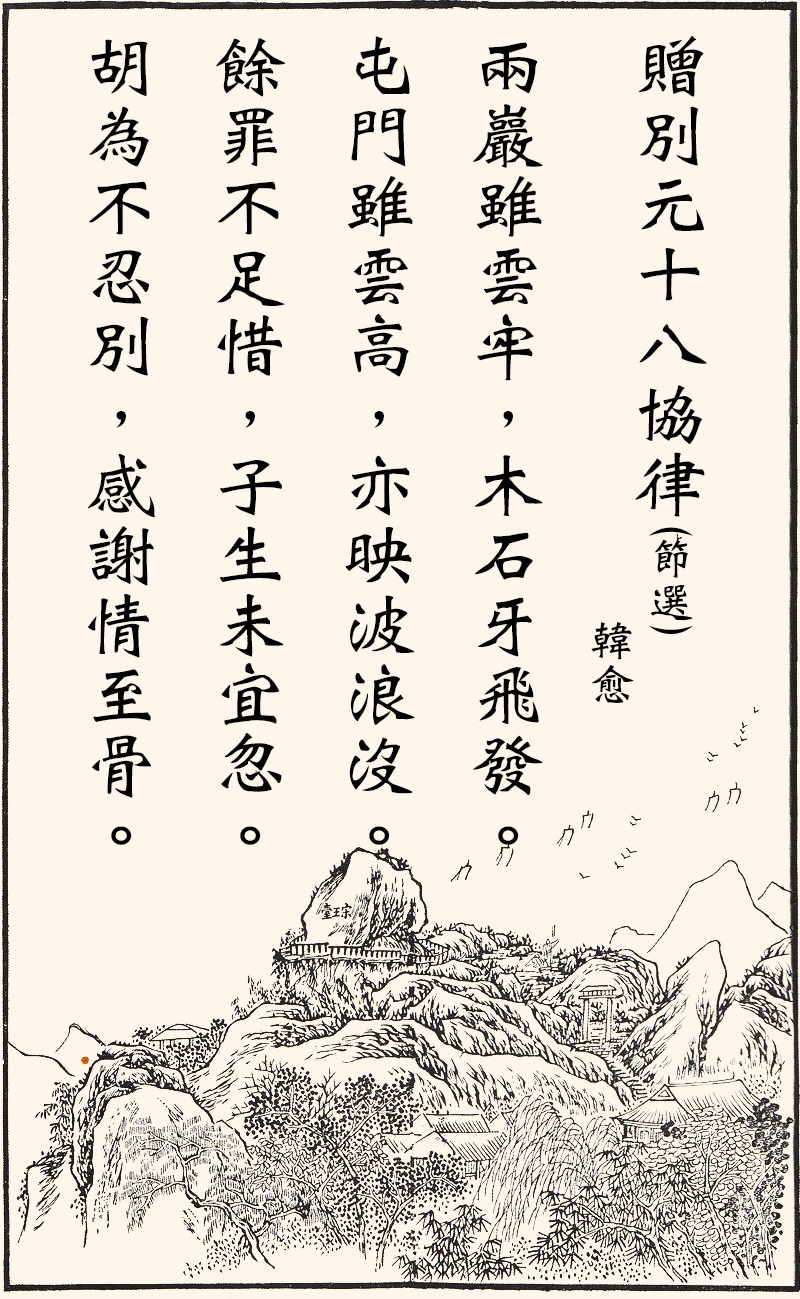 贈別元十八協律(節選)
韓愈
兩巖雖雲牢,木石牙飛發。
屯門雖雲高,亦映波浪沒。
餘罪不足惜,子生未宜忽。
胡為不忍別,感謝情至骨。
宋王臺